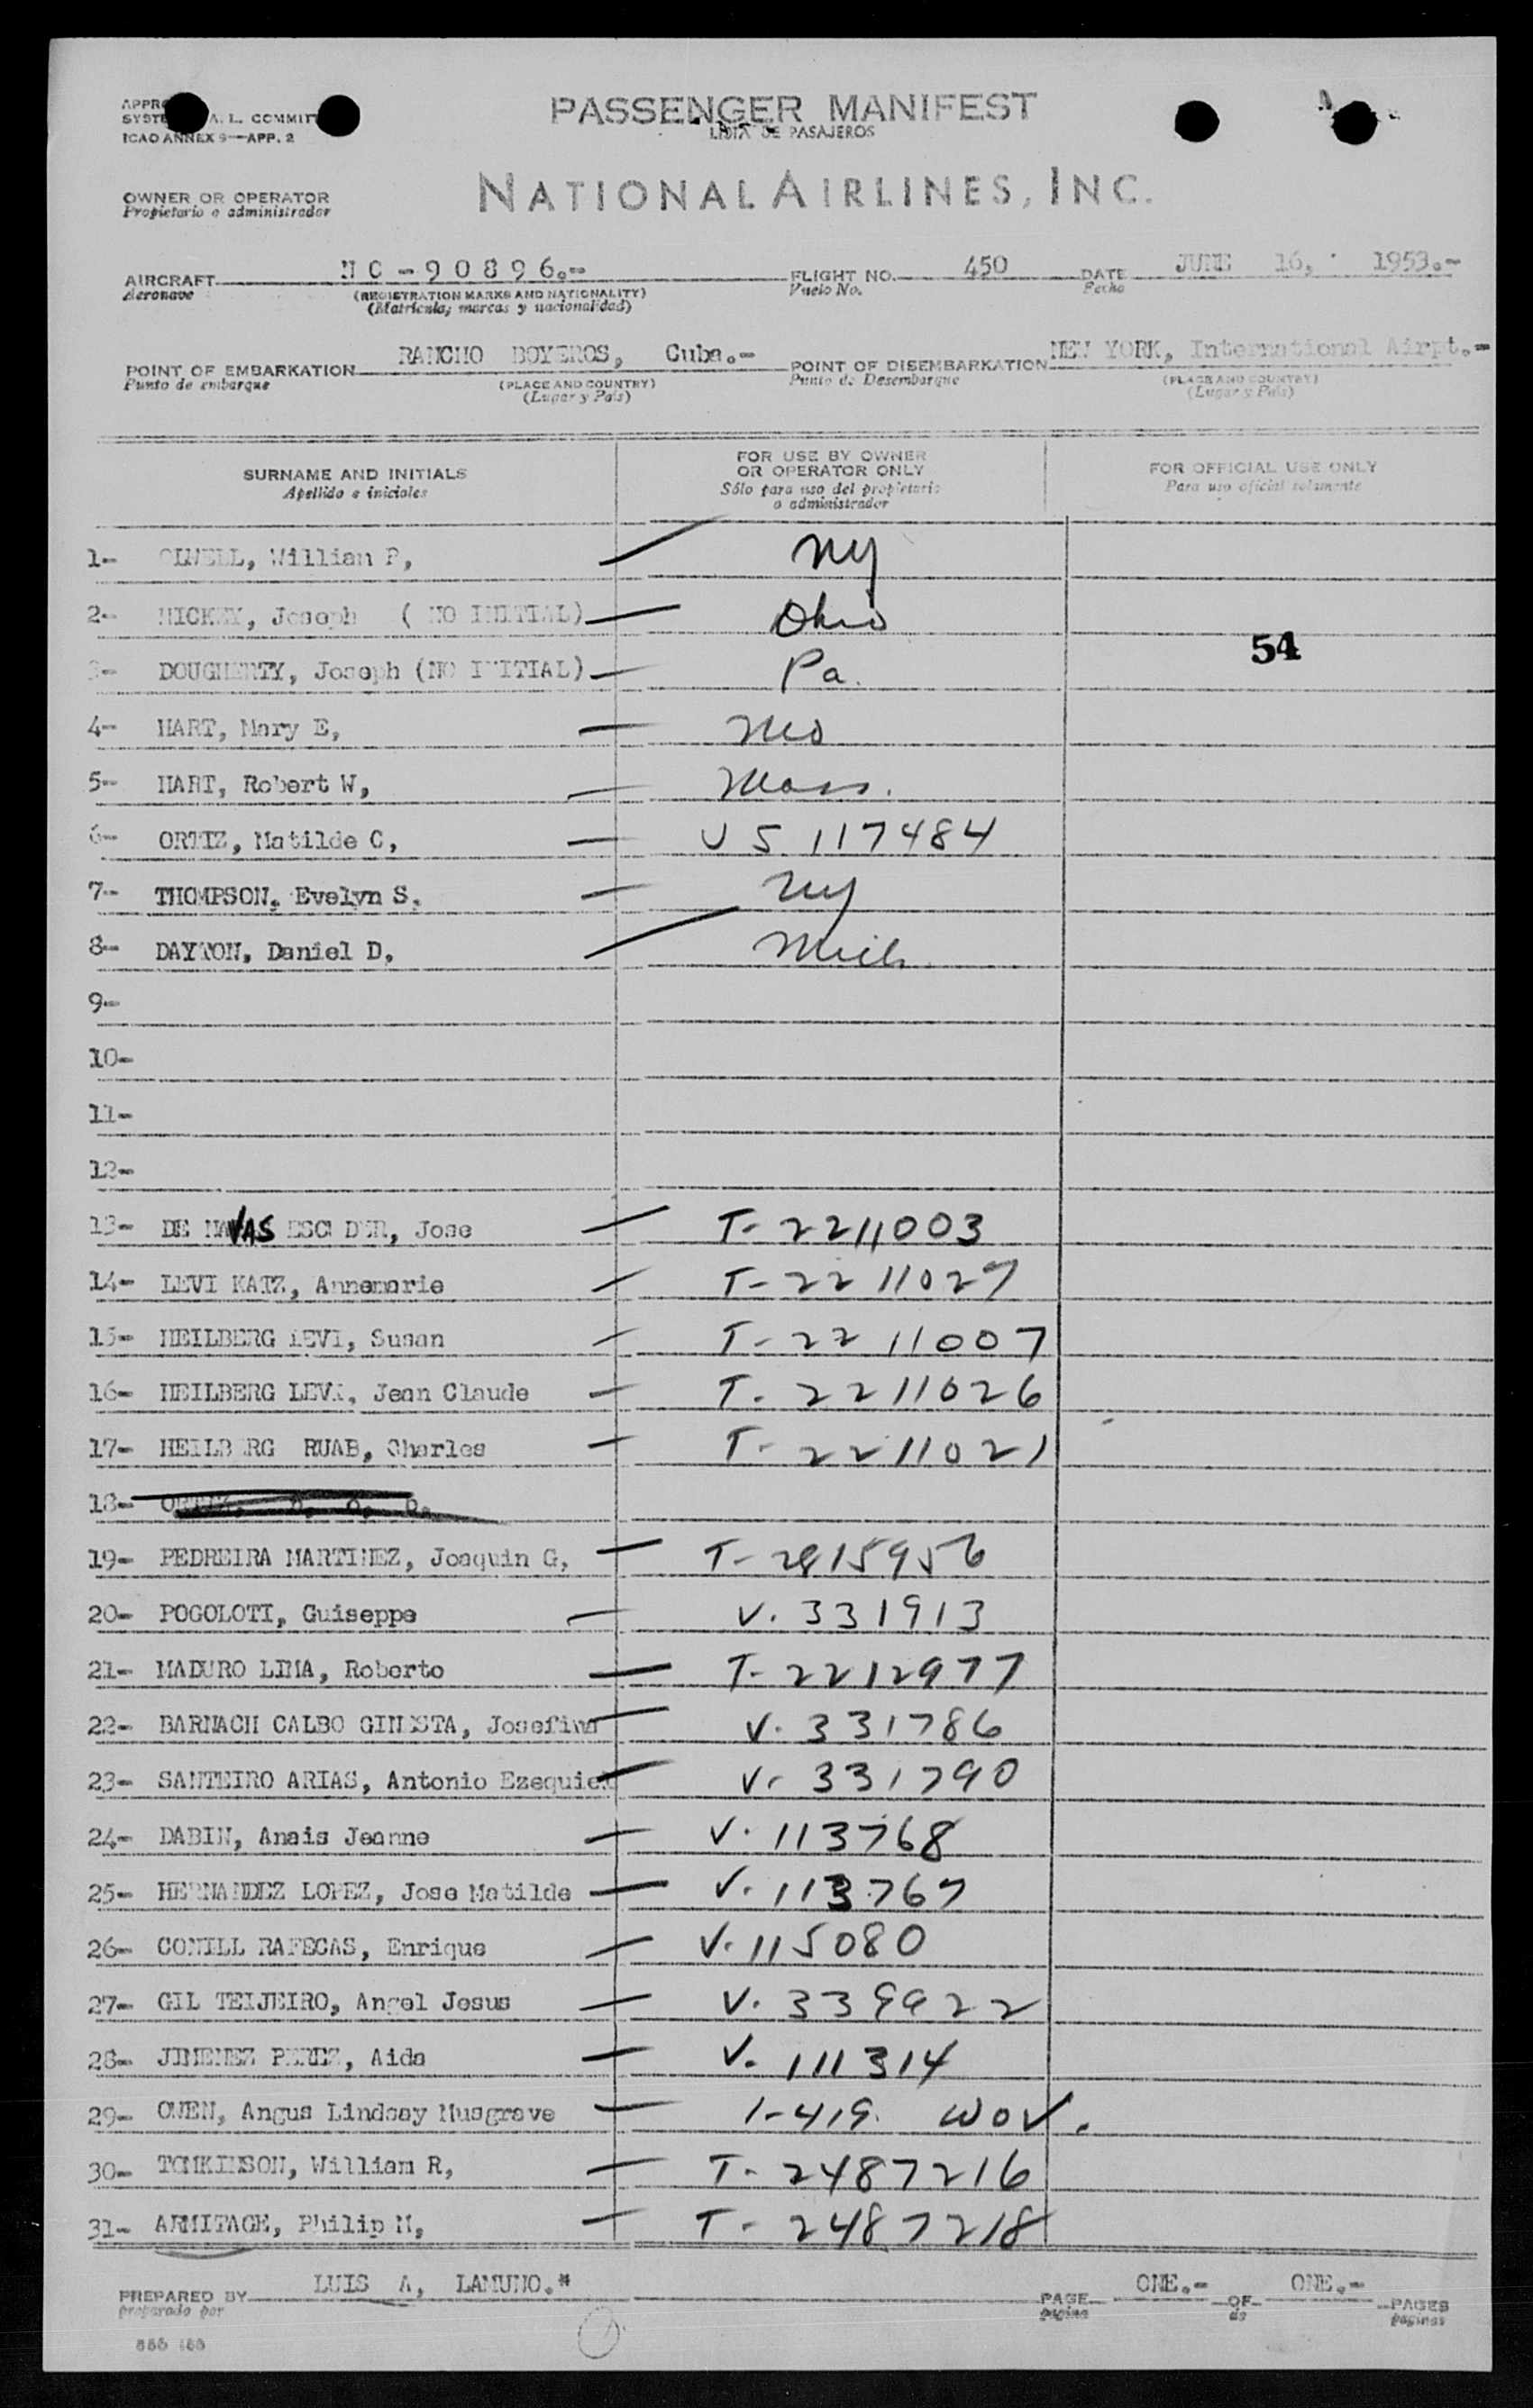 PASSENGER MANIFEST
LISTA DE PASAJEROS
SYSTE A. L. COMMIT
ICAO ANNEX 9—APP. 2
NATIONAL AIRLINES, INC.
OWNER OR OPERATOR
Propietario o administrador
AIRCRAFT NC-90896.- FLIGHT NO. 450 DATE JUNE 16, 1953.-
Aeronave (REGISTRATION MARKS AND NATIONALITY) Vuelo No. Fecha
(Matricula, marcas y nacionalidad)
POINT OF EMBARKATION RANCHO BOYEROS, Cuba.- POINT OF DISEMBARKATION NEW YORK, International Airpt.-
Punto de embarque (PLACE AND COUNTRY) Punto de Desembarque (PLACE AND COUNTRY)
(Lugar y País) (Lugar y País)
SURNAME AND INITIALS FOR USE BY OWNER OR OPERATOR ONLY FOR OFFICIAL USE ONLY
Apellido e iniciales Sólo para uso del propietario o administrador Para uso oficial solamente
1- William P, NY
2- HICKEY, Joseph (NO INITIAL) Ohio
54
3- DOUGHERTY, Joseph (NO INITIAL) Pa.
4- HART, Mary E, Mo
5- HART, Robert W, Mass.
6- ORTIZ, Matilde C, US 117484
7- THOMPSON, Evelyn S, NY
8- DAYTON, Daniel D, Mich.
9-
10-
11-
12-
13- DE NAVAS Jose T-2211003
14- LEVI KATZ, Annemarie T-2211027
15- HEILBERG LEVI, Susan T-2211007
16- HEILBERG LEVI, Jean Claude T-2211026
17- HEILBERG RUAB, Charles T-2211021
18-
19- PEDREIRA MARTINEZ, Joaquin G,
20- POGOLOTI, Guiseppe V. 331913
21- MADURO LIMA, Roberto T-2212977
22- BARNACH CALBO GINESTA, Josefina V. 331786
23- SANTEIRO ARIAS, Antonio Ezequiel V. 331790
24- DABIN, Anais Jeanne V. 113768
25- HERNANDEZ LOPEZ, Jose Matilde V. 113767
26- CONILL RAFECAS, Enrique V. 115080
27- GIL TEIJEIRO, Angel Jesus V. 339922
28- JIMENEZ PEREZ, Aida V. 111314
29- OWEN, Angus Lindsay Musgrave 1-419. WOV.
30- TOMKINSON, William R, T-2487216
31- ARMITAGE, Philip N, T-2487218
PREPARED BY LUIS A, LAMUNO.* PAGE ONE.- OF ONE.- PAGES
preparado por pagina de paginas